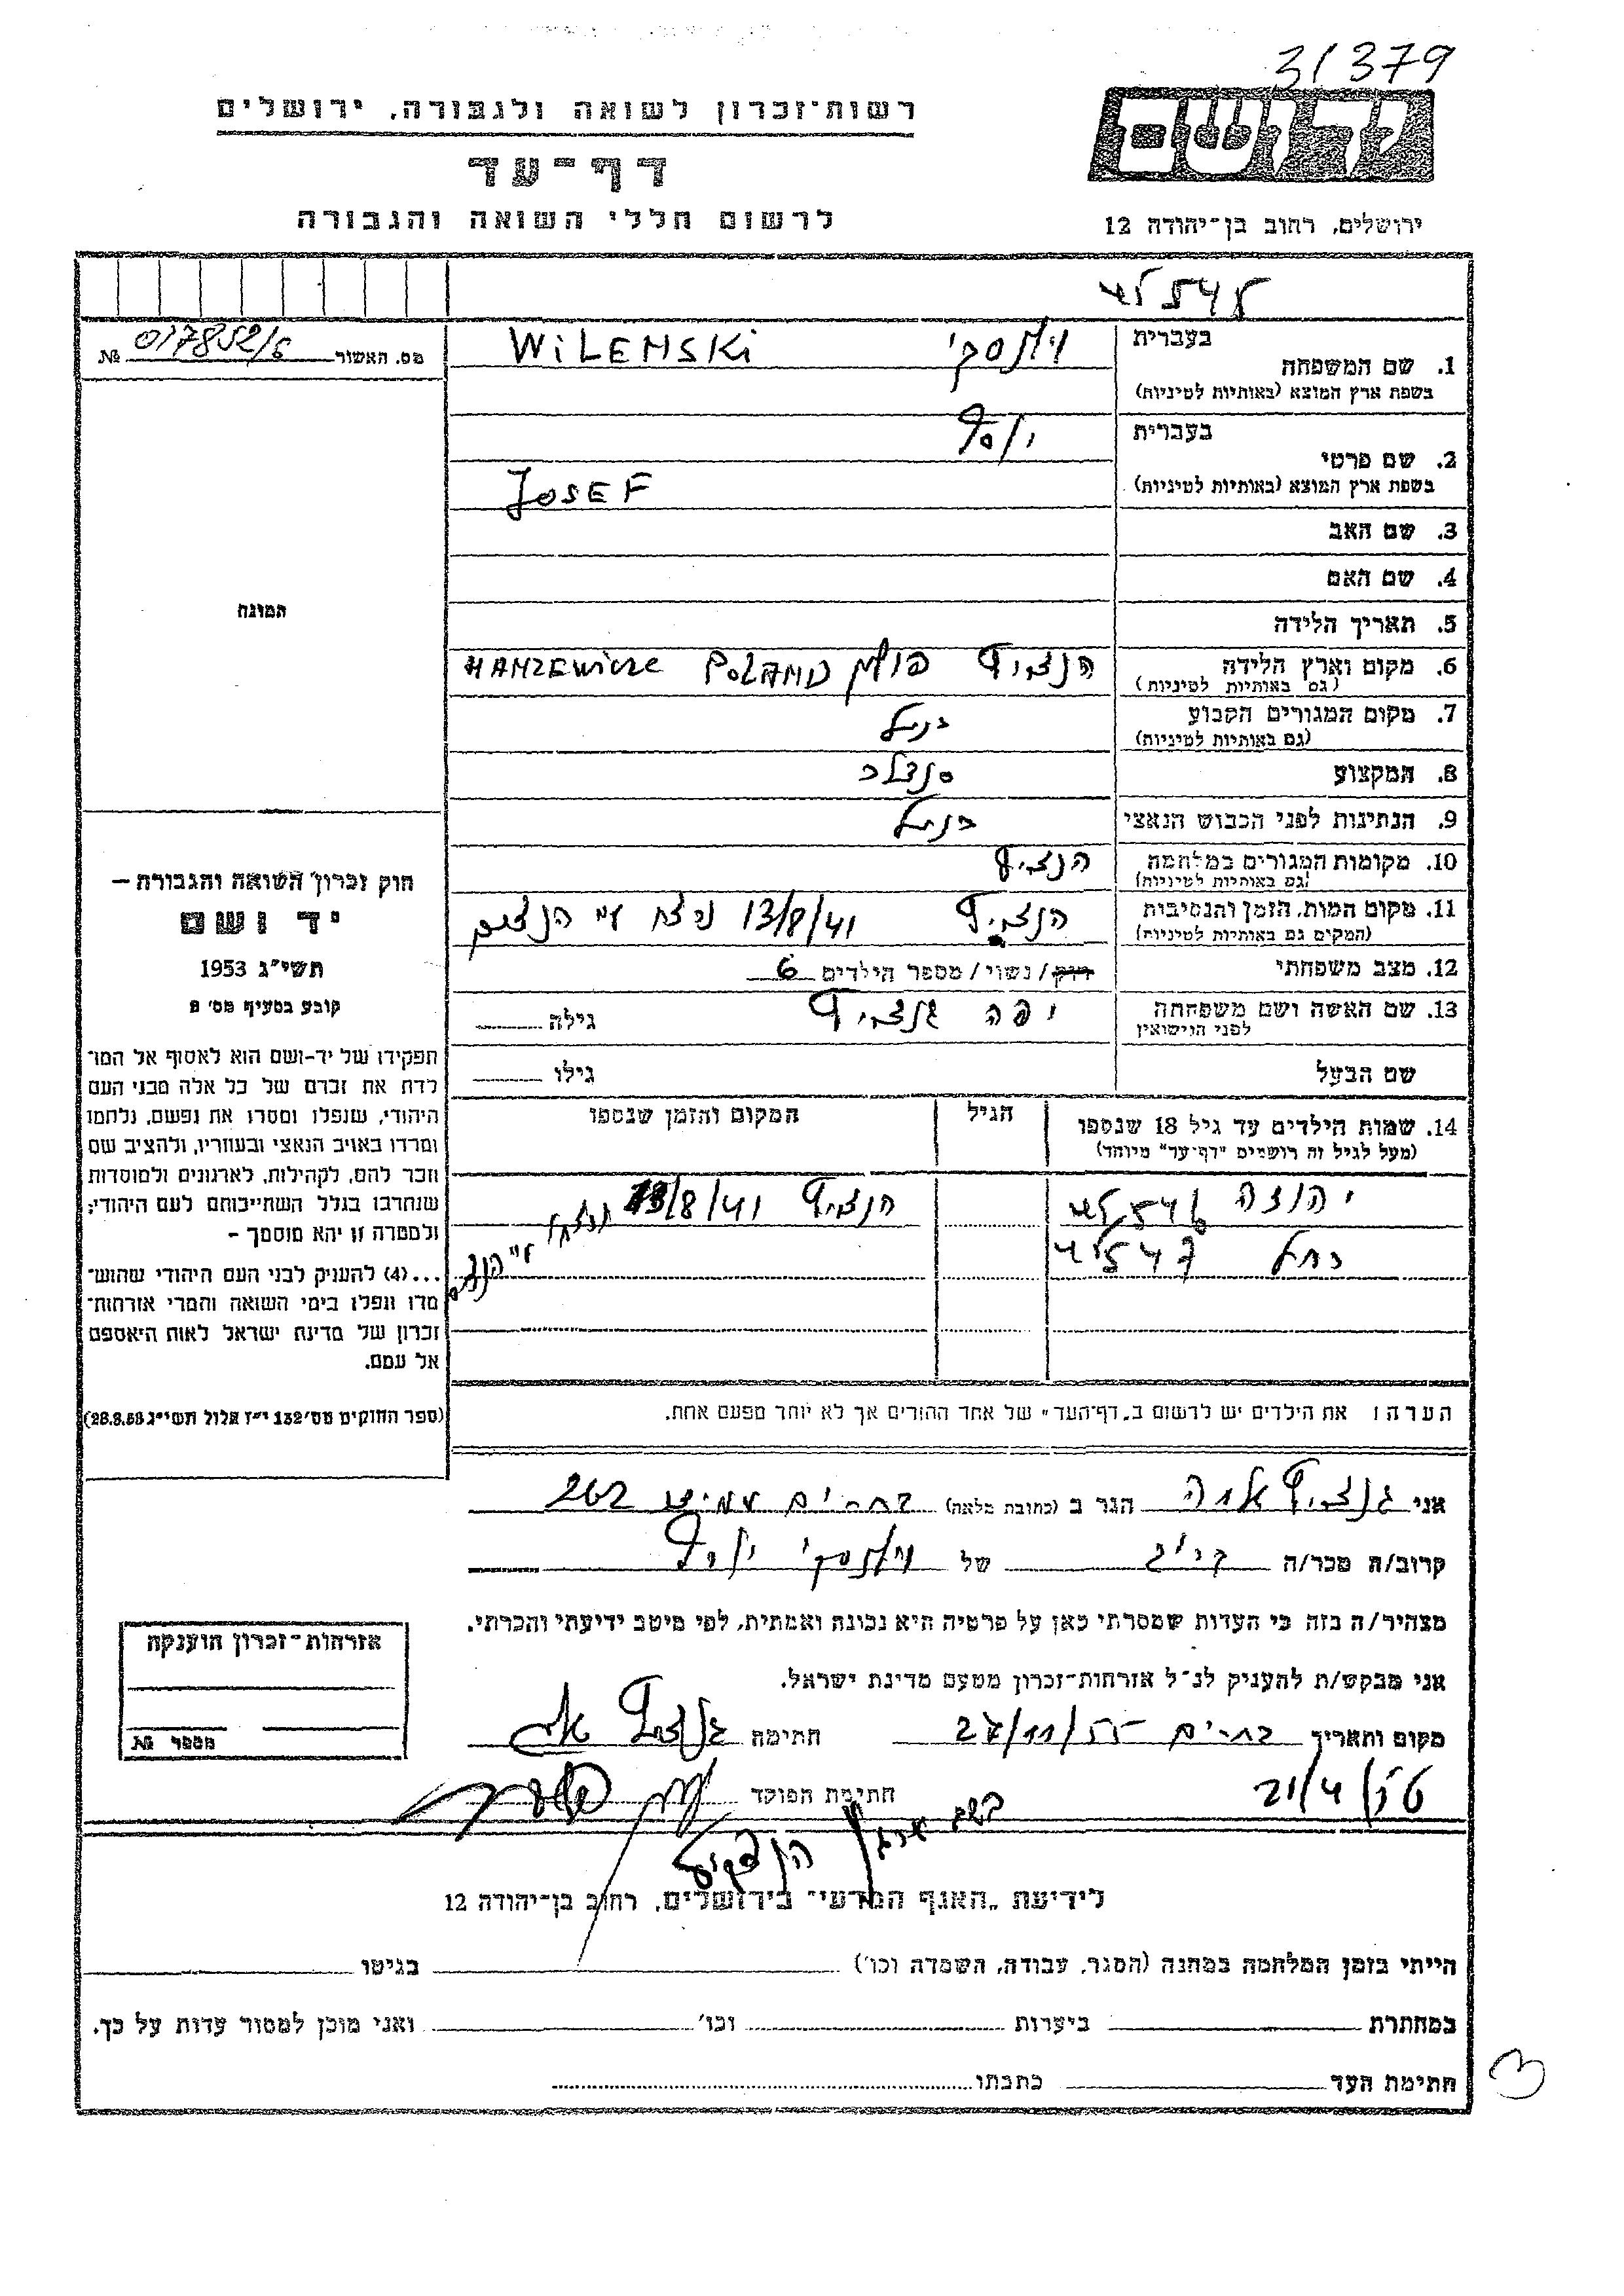 31379
רשות־זכרון לשואה ולגבורה, ירושלים
דף־עד
לרשום חללי השואה והגבורה
יד ושם
ירושלים, רחוב בן־יהודה 12
מס. האשור 017852/6 №
1. שם המשפחה בעברית וילנסקי
בשפת ארץ המוצא (באותיות לטיניות) WiLEMSKi
2. שם פרטי בעברית יוסף
בשפת ארץ המוצא (באותיות לטיניות) JOSEF
3. שם האב
4. שם האם
5. תאריך הלידה
6. מקום וארץ הלידה הנצביץ פולין POLAND HANZEWicze
(גם באותיות לטיניות)
7. מקום המגורים הקבוע כנ״ל
(גם באותיות לטיניות)
8. המקצוע סנדלר
9. הנתינות לפני הכבוש הנאצי כנ״ל
10. מקומות המגורים במלחמה הנצביץ
(גם באותיות לטיניות)
11. מקום המות, הזמן והנסיבות הנצביץ 13/8/41 נרצח ע״י הנצים
(המקום גם באותיות לטיניות)
12. מצב משפחתי רוק/נשוי/מספר הילדים 6
13. שם האשה ושם משפחתה יפה גנצביץ גילה
לפני הנישואין
שם הבעל גילו
14. שמות הילדים עד גיל 18 שנספו הגיל המקום והזמן שנספו
(מעל לגיל זה רושמים "דף־עד" מיוחד)
יהודה הנצביץ 13/8/41
רחל
הערה: את הילדים יש לרשום ב„דף־העד" של אחד ההורים אך לא יותר מפעם אחת.
התמונה
חוק זכרון השואה והגבורה –
יד ושם
תשי״ג 1953
קובע בסעיף מס׳ 2
תפקידו של יד־ושם הוא לאסוף אל המו־
לדת את זכרם של כל אלה מבני העם
היהודי, שנפלו ומסרו את נפשם, נלחמו
ומרדו באויב הנאצי ובעוזריו, ולהציב שם
וזכר להם, לקהילות, לארגונים ולמוסדות
שנחרבו בגלל השתייכותם לעם היהודי;
ולמטרה זו יהא מוסמך –
...(4) להעניק לבני העם היהודי שהוש־
מדו ונפלו בימי השואה והמרי אזרחות־
זכרון של מדינת ישראל לאות היאספם
אל עמם.
(ספר החוקים מס׳ 132 י״ז אלול תשי״ג 28.8.53)
אני גנצביץ הגר ב (כתובת מלאה) 262
קרוב/ה מכר/ה של וילנסקי יוסף
מצהיר/ה בזה כי העדות שמסרתי כאן על פרטיה היא נכונה ואמתית, לפי מיטב ידיעתי והכרתי.
אני מבקש/ת להעניק לנ״ל אזרחות־זכרון מטעם מדינת ישראל.
מקום ותאריך 27/11/55 חתימה גנצביץ
חתימת הפוקד
אזרחות־זכרון הוענקה
מספר №
לידיעת „האגף המדעי" בירושלים, רחוב בן־יהודה 12
הייתי בזמן המלחמה במחנה (הסגר, עבודה, השמדה וכו׳) בגיטו
במחתרת ביערות וכו׳ ואני מוכן למסור עדות על כך.
חתימת העד כתבתו